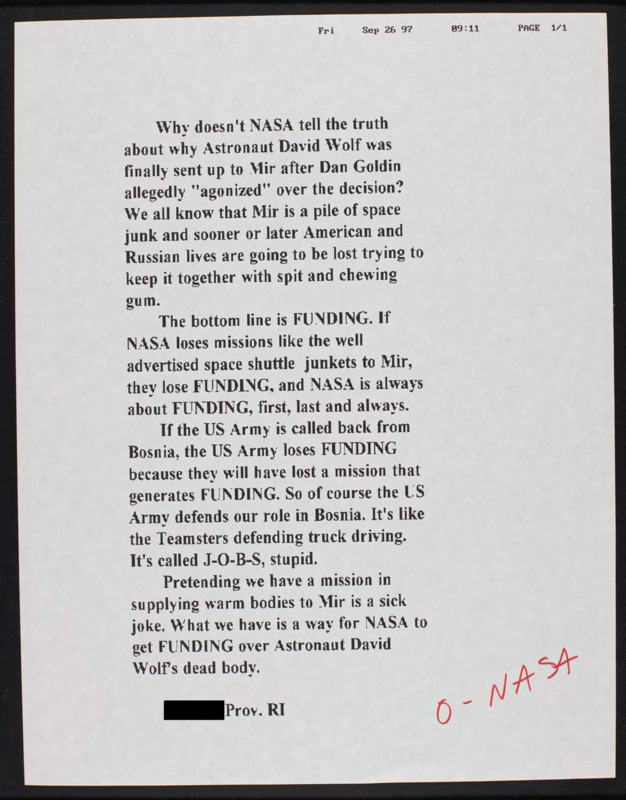 Fri Sep 26 97 09:11 PAGE 1/1
Why doesn't NASA tell the truth
about why Astronaut David Wolf was
finally sent up to Mir after Dan Goldin
allegedly "agonized" over the decision?
We all know that Mir is a pile of space
junk and sooner or later American and
Russian lives are going to be lost trying to
keep it together with spit and chewing
gum.
The bottom line is FUNDING. If
NASA loses missions like the well
advertised space shuttle junkets to Mir,
they lose FUNDING, and NASA is always
about FUNDING, first, last and always.
If the US Army is called back from
Bosnia, the US Army loses FUNDING
because they will have lost a mission that
generates FUNDING. So of course the US
Army defends our role in Bosnia. It's like
the Teamsters defending truck driving.
It's called J-O-B-S, stupid.
Pretending we have a mission in
supplying warm bodies to Mir is a sick
joke. What we have is a way for NASA to
get FUNDING over Astronaut David
Wolf's dead body.
Prov. RI
O - NASA